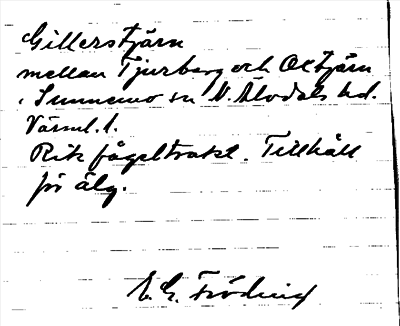 Gillerstjärn
mellan Tjurberg och Oxtjärn
i Sunnemo sn N. Älvdals hd.
Värml. l.
Rik fågeltrakt. Tillhåll
för älg.
E. G. Fröding